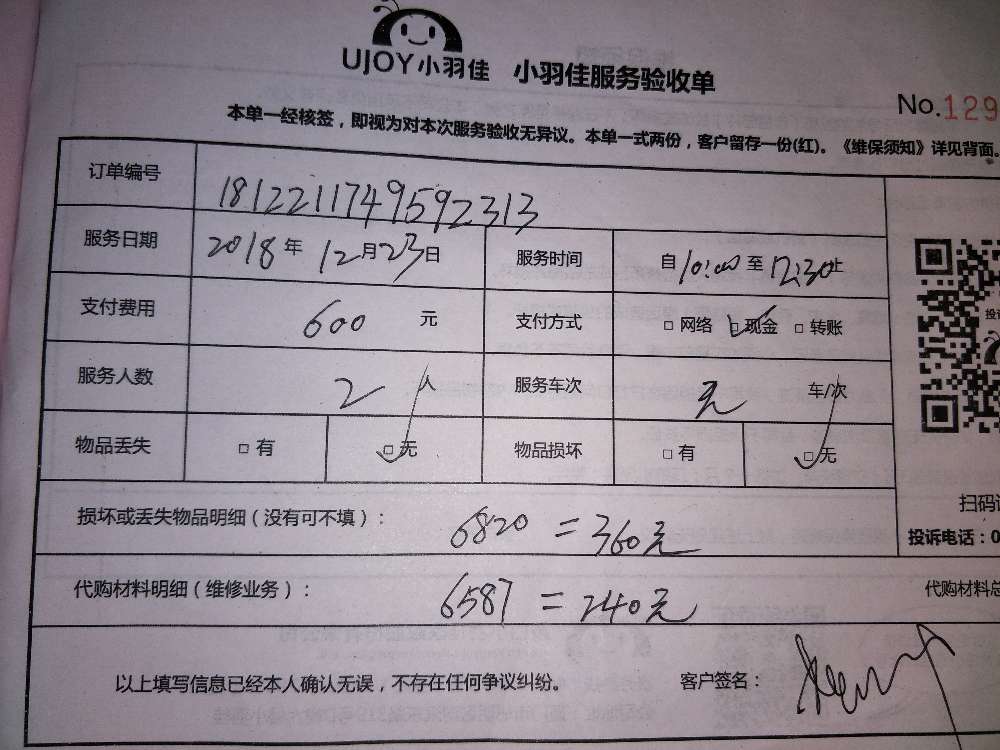 UJOY小羽佳 小羽佳服务验收单
No.129
本单一经核签，即视为对本次服务验收无异议。本单一式两份，客户留存一份(红)。《维保须知》详见背面。
订单编号 1812211749592313
服务日期 2018年12月23日 服务时间 自10:00至12:30止
支付费用 600 元 支付方式 □网络 □现金 □转账
服务人数 2 人 服务车次 无 车/次
物品丢失 □有 □无 物品损坏 □有 □无
扫码
损坏或丢失物品明细（没有可不填）： 6820 = 360元
投诉电话：0
代购材料明细（维修业务）： 6587 = 240元 代购材料总
以上填写信息已经本人确认无误，不存在任何争议纠纷。 客户签名：